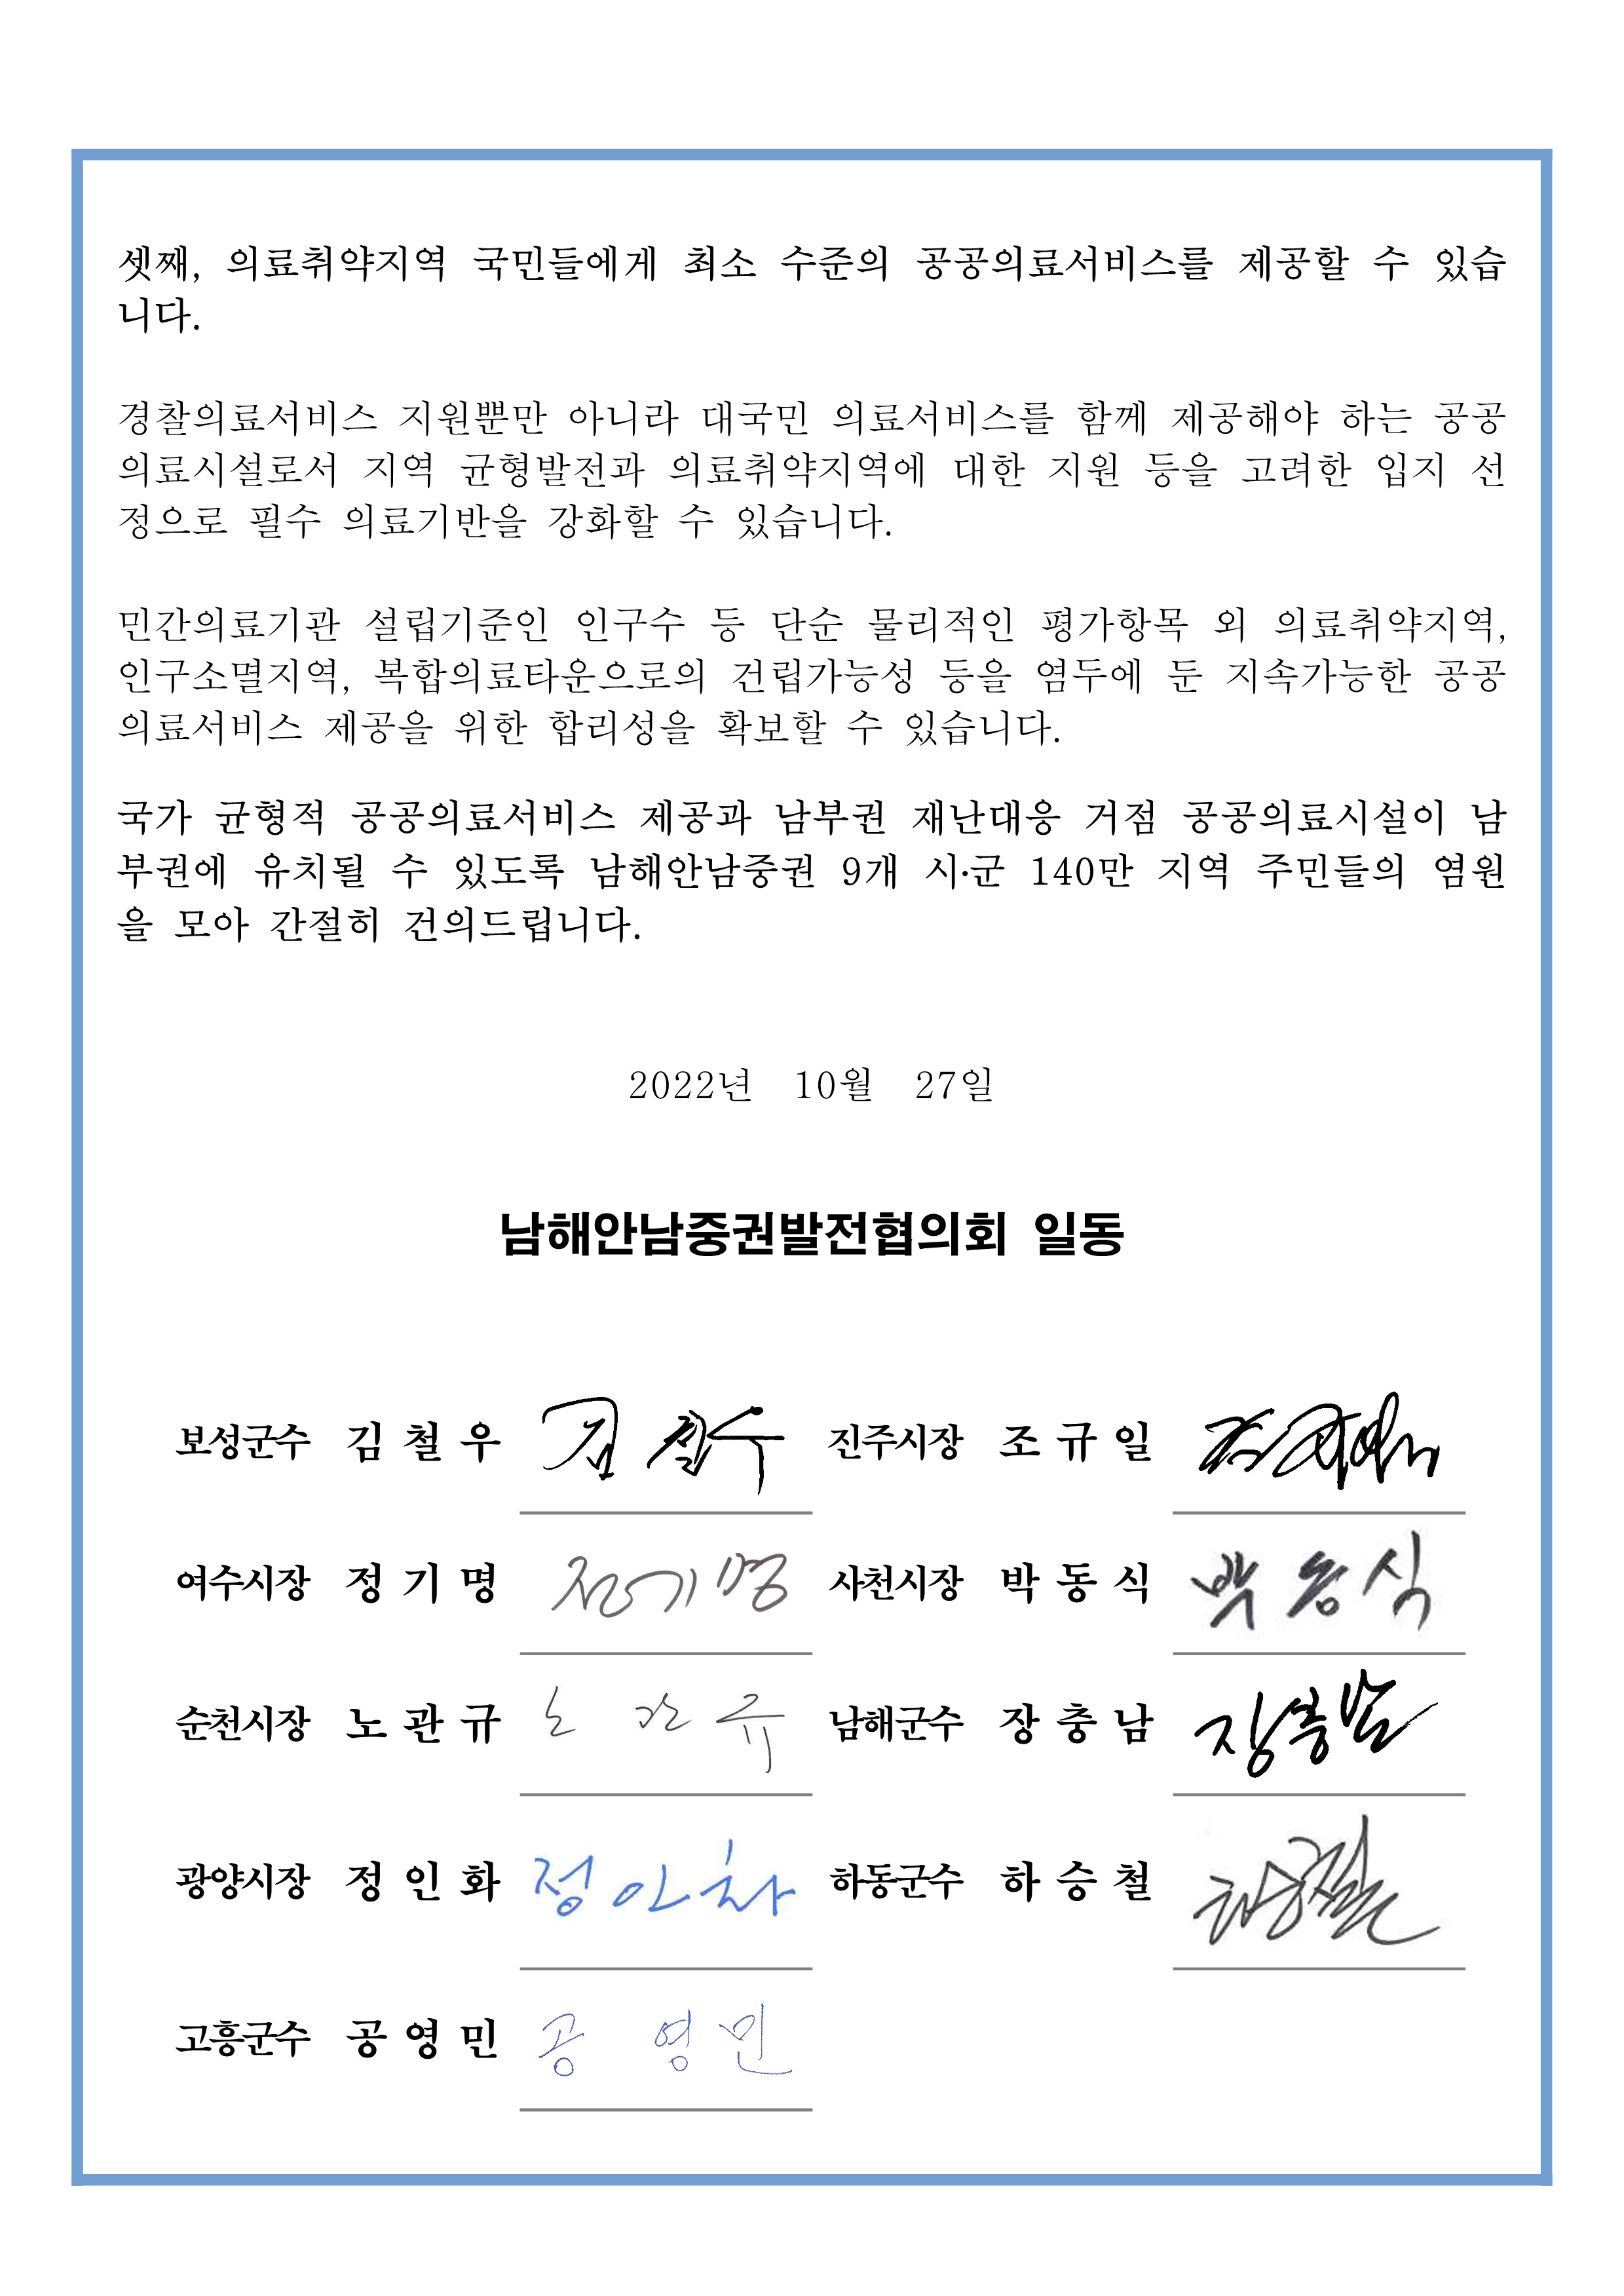 셋째, 의료취약지역 국민들에게 최소 수준의 공공의료서비스를 제공할 수 있습
니다.
경찰의료서비스 지원뿐만 아니라 대국민 의료서비스를 함께 제공해야 하는 공공
의료시설로서 지역 균형발전과 의료취약지역에 대한 지원 등을 고려한 입지 선
정으로 필수 의료기반을 강화할 수 있습니다.
민간의료기관 설립기준인 인구수 등 단순 물리적인 평가항목 외 의료취약지역,
인구소멸지역, 복합의료타운으로의 건립가능성 등을 염두에 둔 지속가능한 공공
의료서비스 제공을 위한 합리성을 확보할 수 있습니다.
국가 균형적 공공의료서비스 제공과 남부권 재난대응 거점 공공의료시설이 남
부권에 유치될 수 있도록 남해안남중권 9개 시·군 140만 지역 주민들의 염원
을 모아 간절히 건의드립니다.
2022년 10월 27일
남해안남중권발전협의회 일동
보성군수 김 철 우 김철우 진주시장 조 규 일
여수시장 정 기 명 정기명 사천시장 박 동 식 박동식
순천시장 노 관 규 노관규 남해군수 장 충 남 장충남
광양시장 정 인 화 정인화 하동군수 하 승 철 하승철
고흥군수 공 영 민 공영민